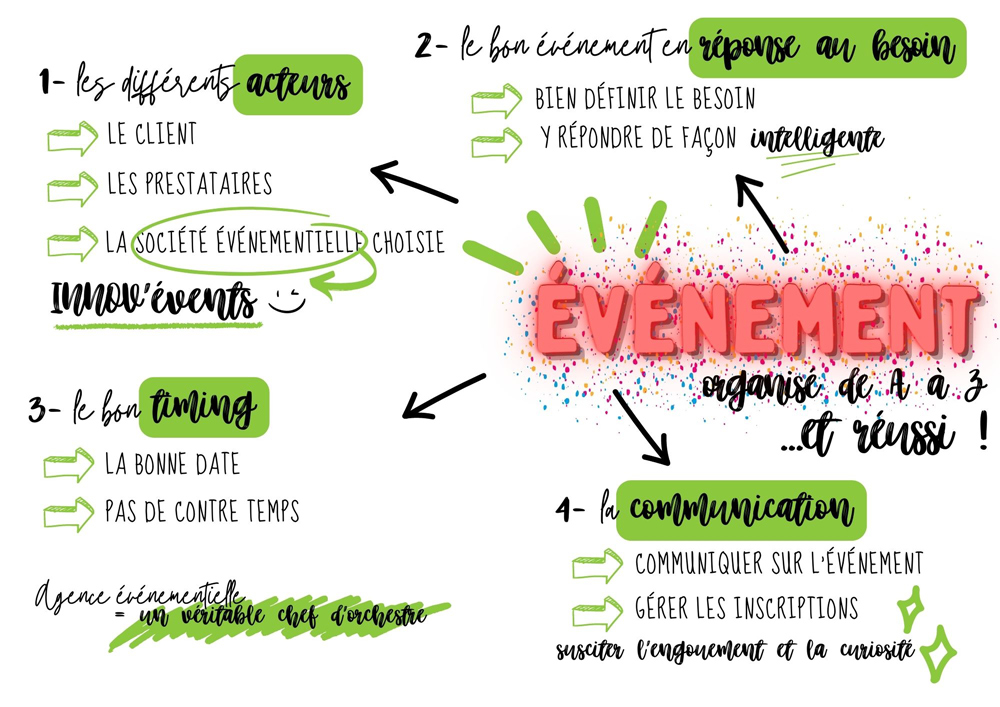 1- les différents acteurs
LE CLIENT
LES PRESTATAIRES
LA SOCIÉTÉ ÉVÉNEMENTIELLE CHOISIE
INNOV'évents
2- le bon événement en réponse au besoin
BIEN DÉFINIR LE BESOIN
Y RÉPONDRE DE FAÇON intelligente
ÉVÉNEMENT
organisé de A à Z
...et réussi !
3- le bon timing
LA BONNE DATE
PAS DE CONTRE TEMPS
4- la communication
COMMUNIQUER SUR L'ÉVÉNEMENT
GÉRER LES INSCRIPTIONS
susciter l'engouement et la curiosité
Agence événementielle
= un véritable chef d'orchestre